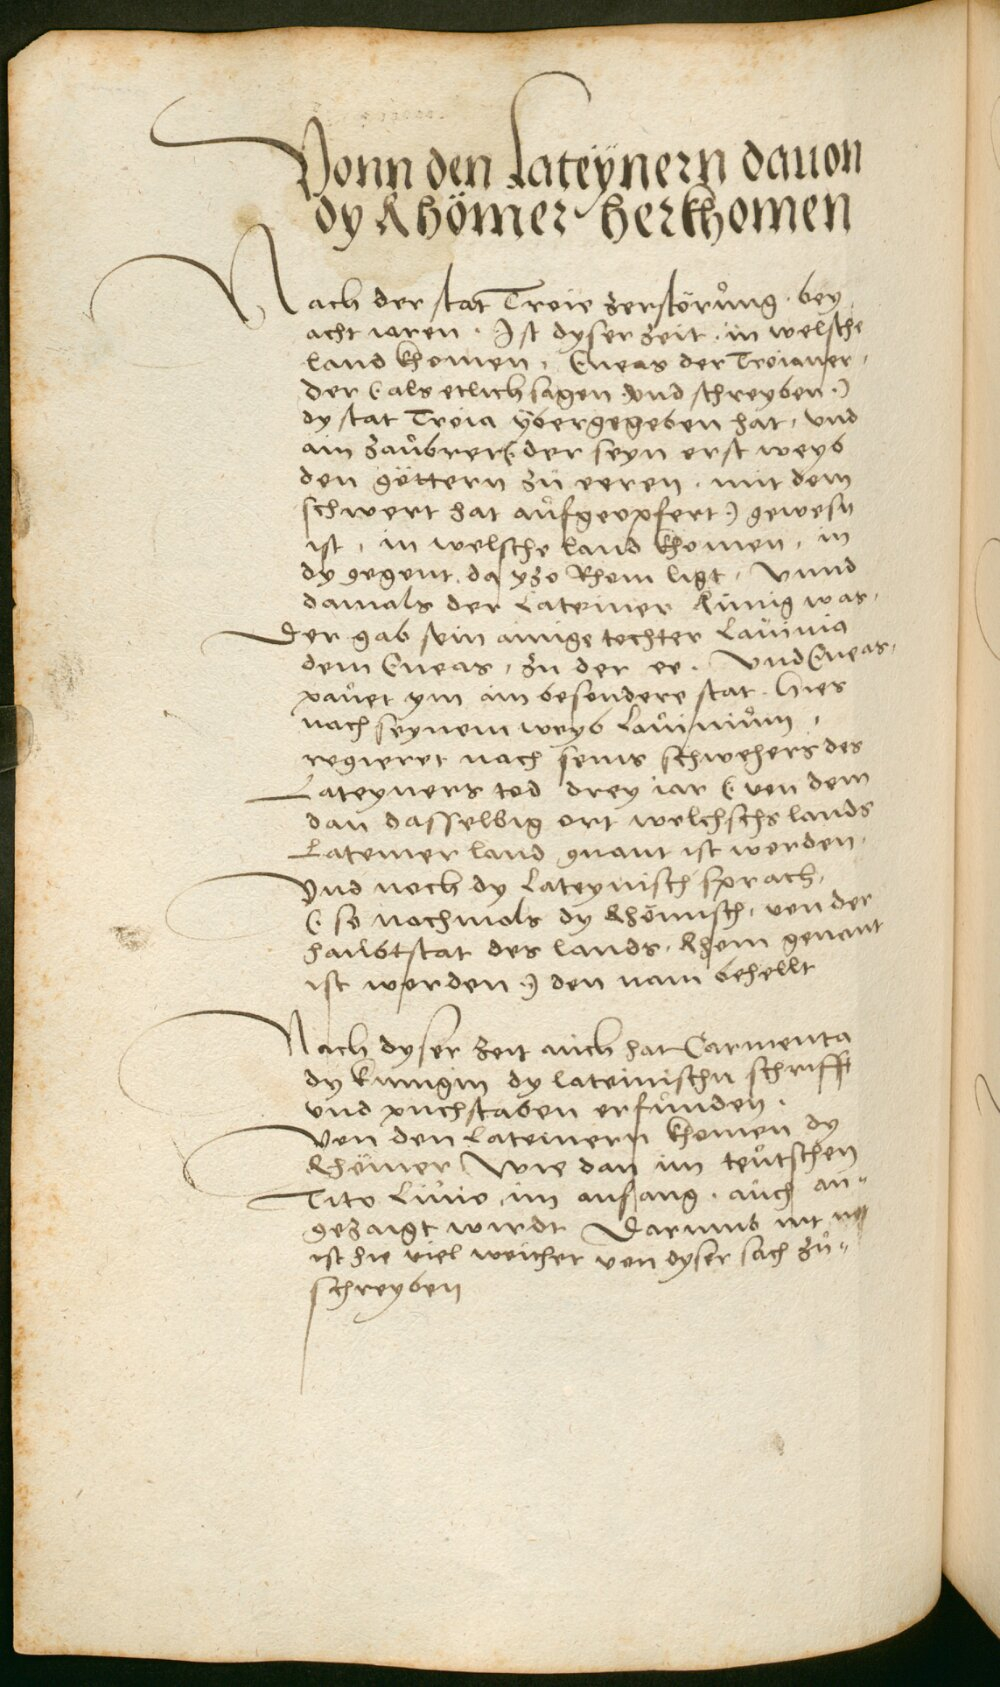 Vonn den Lateÿnern dauon
dy Rhömer herkhomen
Nach der stat Troie zerstörůng · bey
acht iaren · Ist dyser zeit · in welsche
land khomen, Eneas der Troianer,
der (als etlich sagen vnd schreyben ·)
dy stat Troia ÿbergegeben hat, vnd
ain zaůbrer (der seyn erst weyb
den göttern zů eeren · mit dem
schwert hat aůfgeopfert ·) gewesn
ist, in welsche land khomen, in
dy gegent, da yzo Rhom ligt, Vnnd
damals der Lateiner künig was,
Der gab sein ainige tochter Lauinia
dem Eneas, zu der ee · Vnd Eneas,
paůet ym ain besondere stat · hies
nach seynem weyb Laůiniům,
regieret nach seins schwehers des
Lateyners tod drey iar (von dem
dan dasselbig ort welchschs lands
Lateiner land gnant ist worden,
Vnd noch dy Lateynisch sprach,
(so nochmals dy Rhömisch, von der
haůbtstat des lands, Rhom genant
ist worden ·) den nam behellt
Nach dyser zeit auch hat Carmenta
dy künigin dy lateinischn schrifft
vnd puchstaben erfůnden ·
Von den Lateinern khomen dy
Rhömer Wie dan im teůtschen
Tito Liůio im anfang · aůch an=
gezaigt wirdt Darumb nit
ist hie viel weither von dyser sach zů=
schreyben